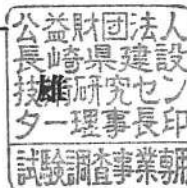 公益財団法人
長崎県建設
技術研究セン
ター理事長印
試験調査事業専用
雄